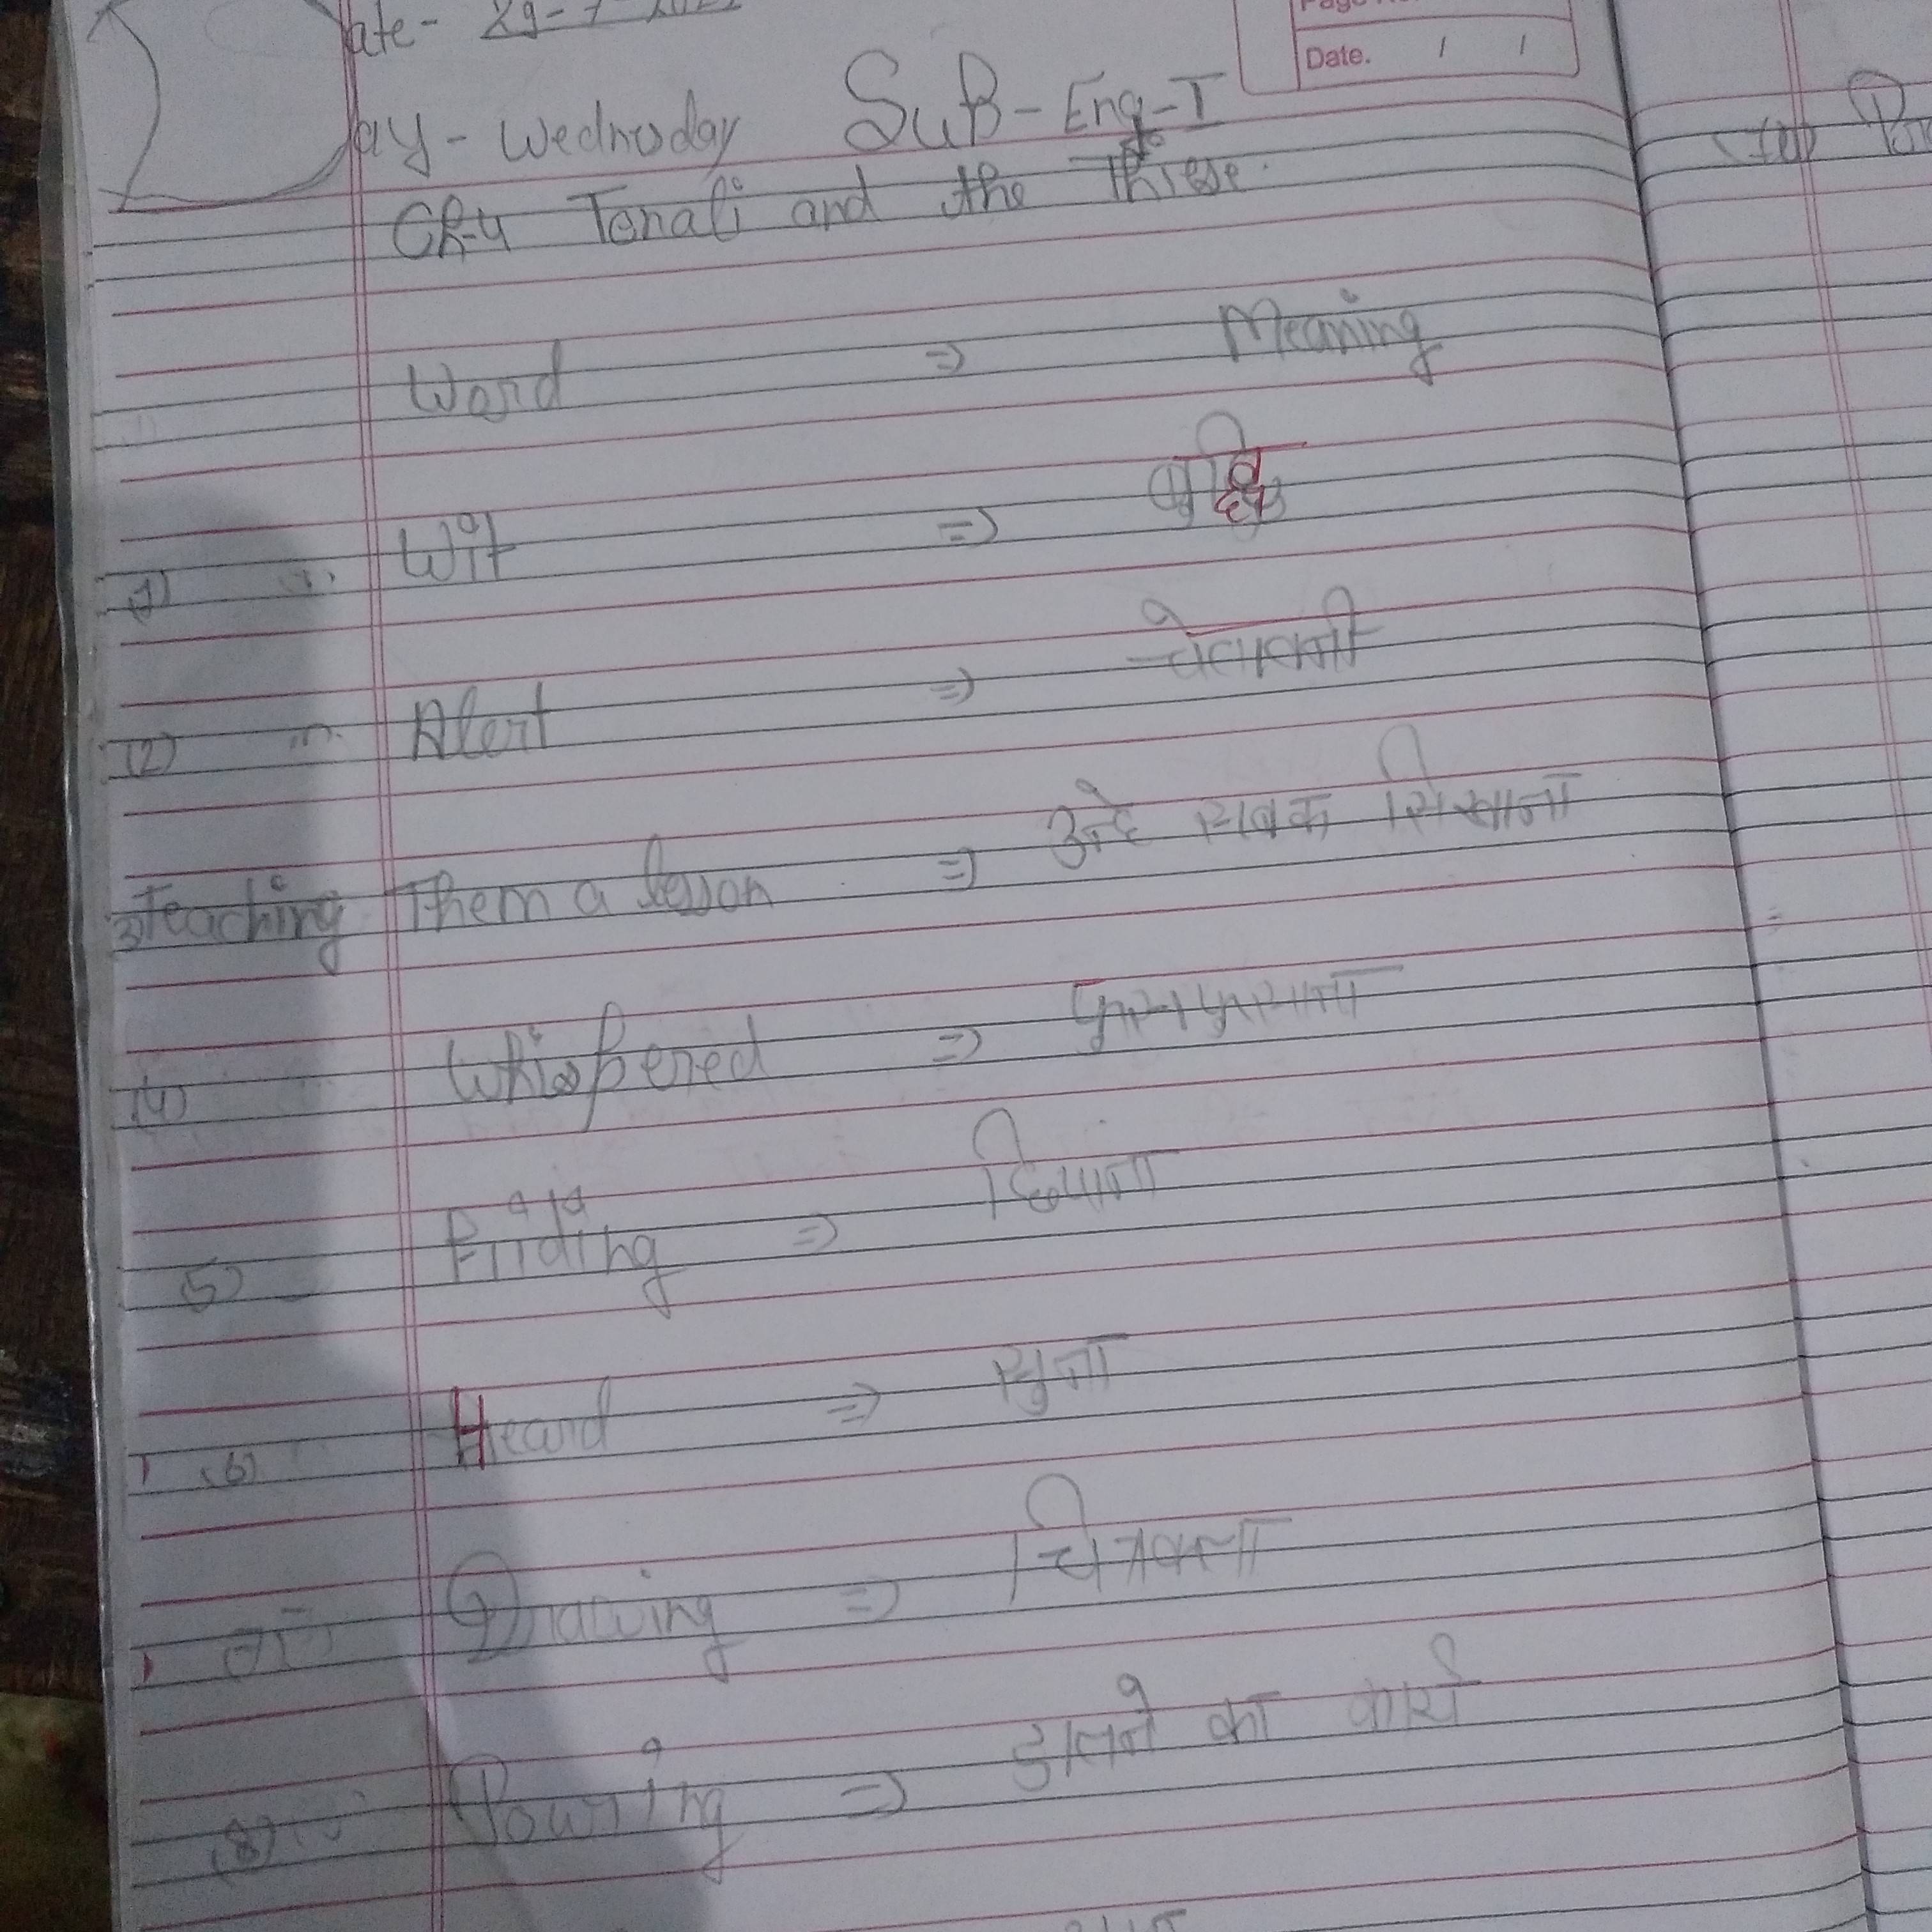 Date.
Day - Wednusday SuB - Eng-I
Ch-4 Tenali and the Thiese.
Word => Meaning
(1) Wit => बुद्धि
(2) Alert => चेतावनी
3) Teaching Them a lesson => उन्हें सबक सिखाना
(4) Whispered => फुसफुसाना
(5) Hiding => छिपाना
(6) Heard => सुना
Drawing => चित्रकला
(8) Pouring => डालने का कार्य